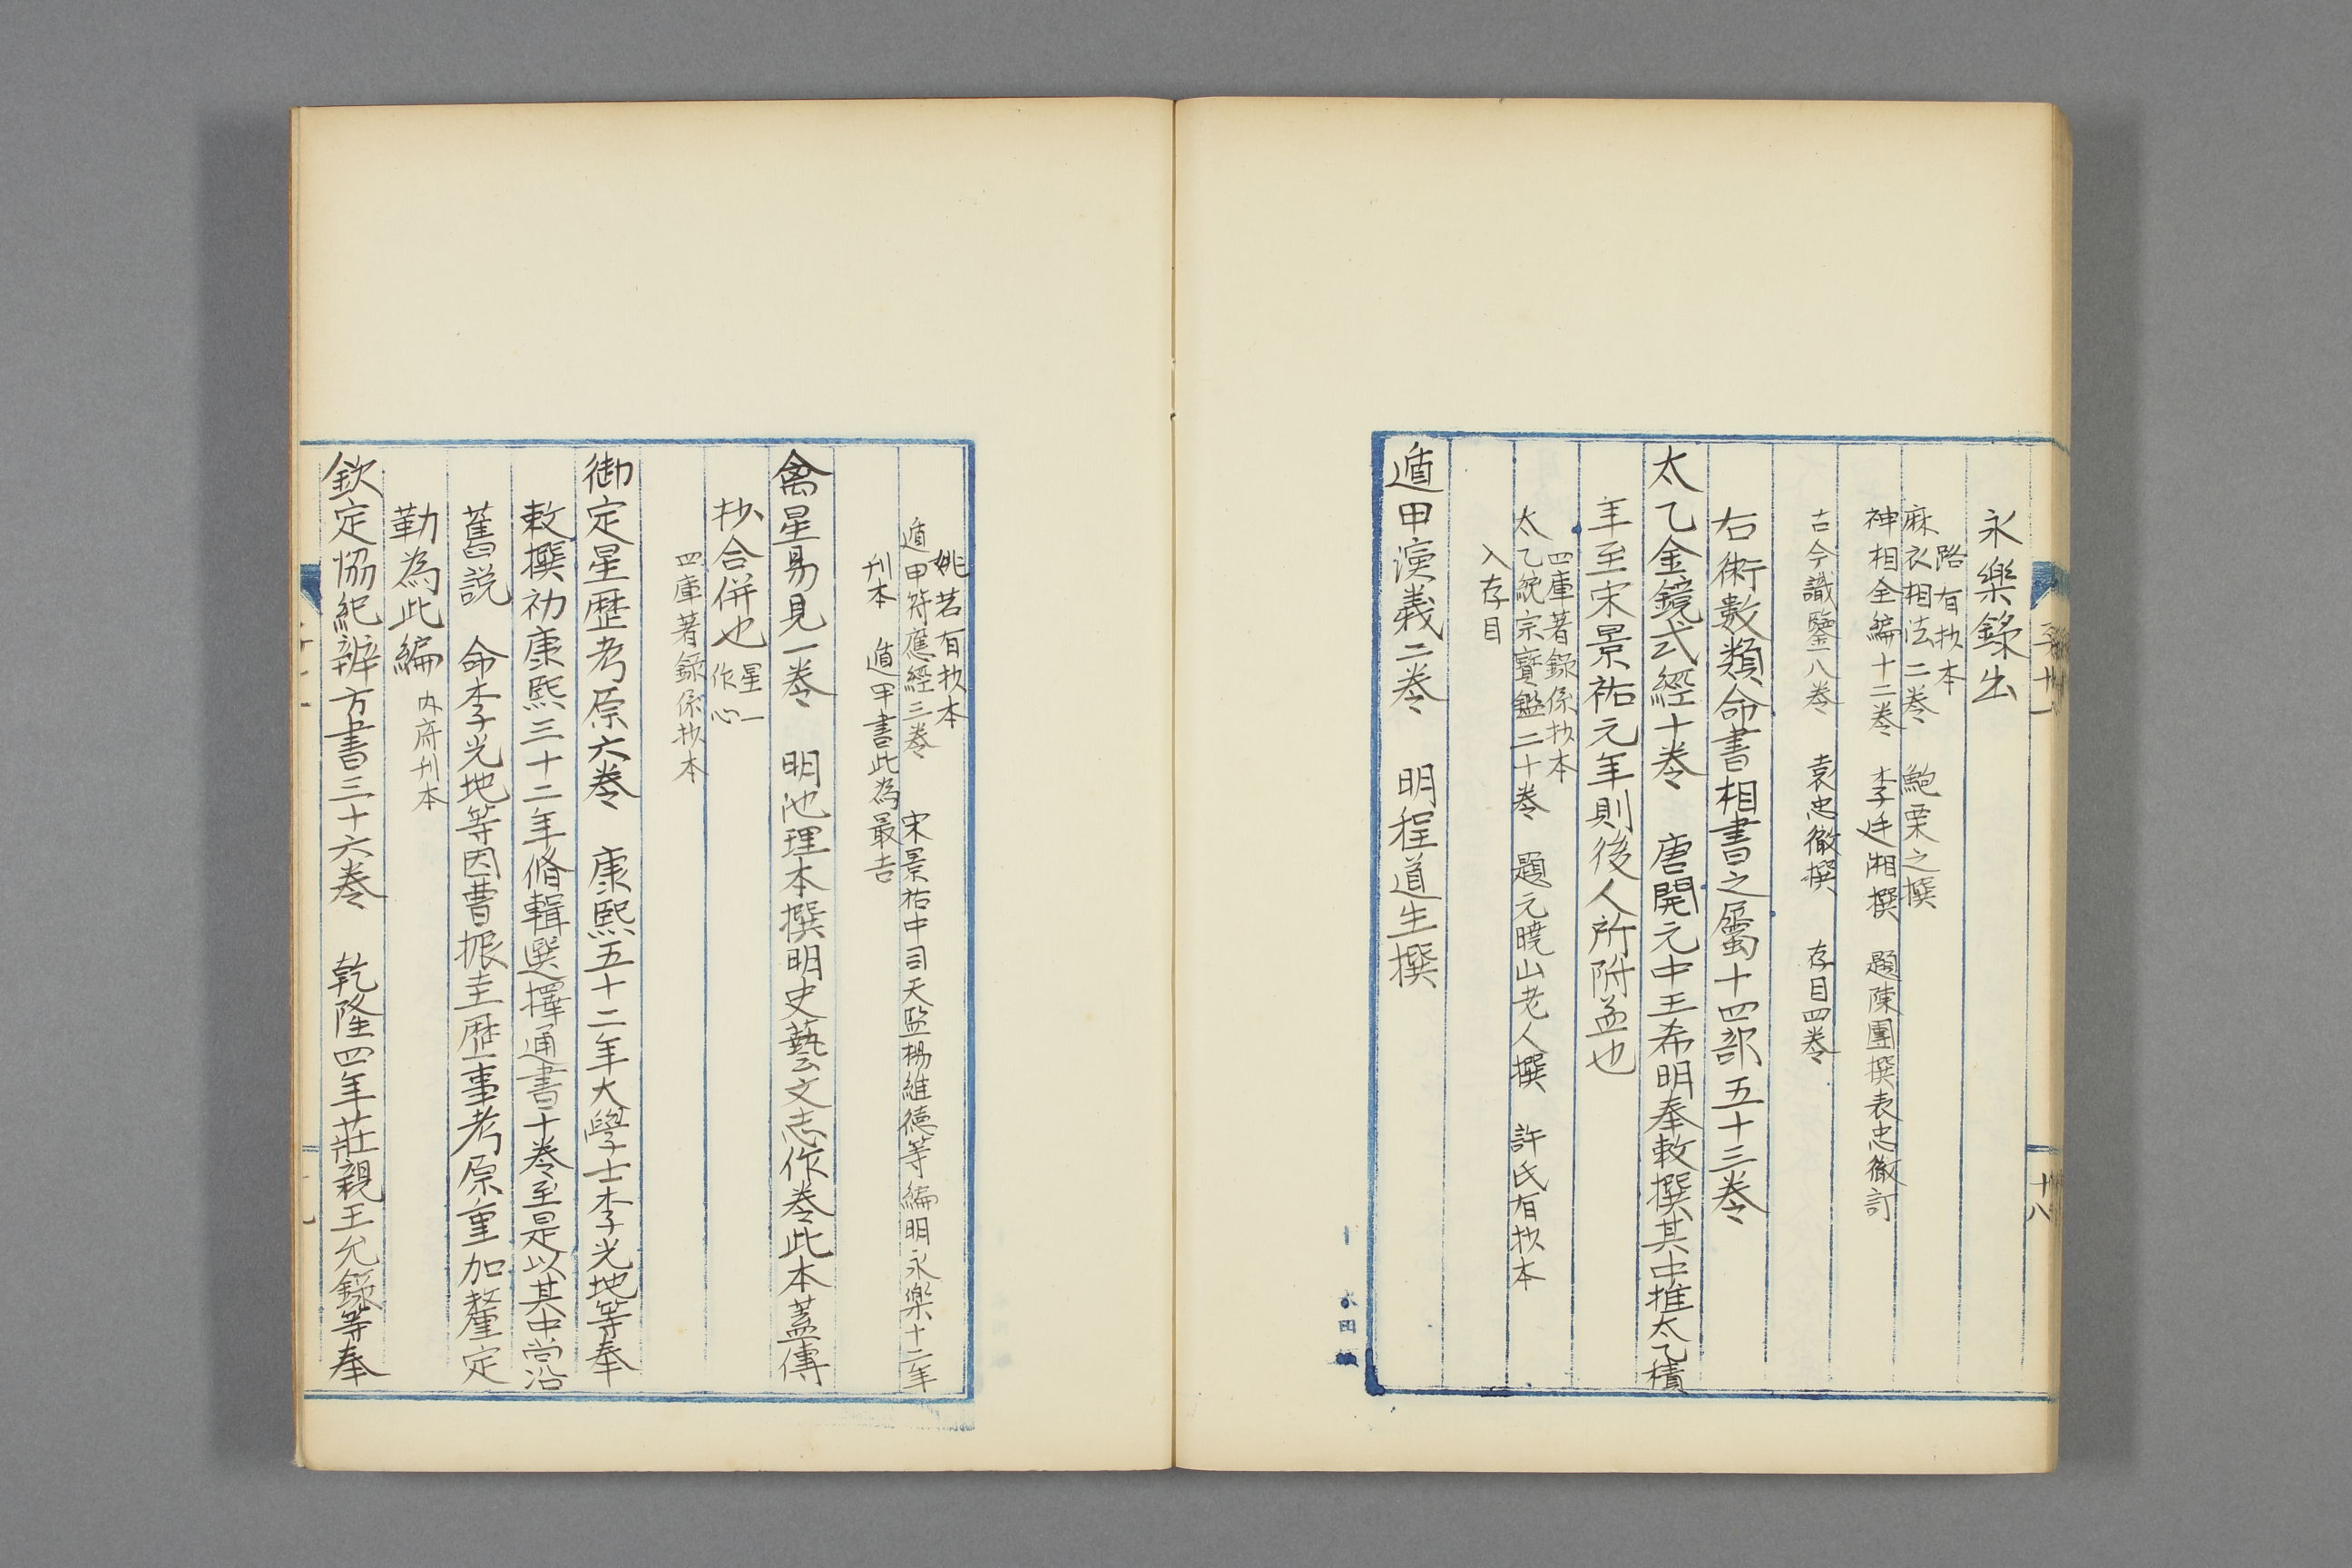 永樂錄出
路有抄本
麻衣相法二卷　鮑栗之撰
神相全編十二卷　李廷湘撰　題陳團撰表忠徹訂
古今識鑒八卷　袁忠徹撰　存目四卷
右術數類命書相書之屬十四部五十三卷
太乙金鏡式經十卷　唐開元中王希明奉敕撰其中推太乙積
年至宋景祐元年則後人所附益也
四庫著錄係抄本
太乙統宗寶鑑二十卷　題元曉山老人撰　許氏有抄本
入存目
遁甲演義二卷　明程道生撰
姚若有抄本
遁甲符應經三卷　宋景祐中司天監楊維德等編明永樂十二年
刊本　遁甲書此為最古
禽星易見一卷　明池理本撰明史藝文志作卷此本蓋傳
抄合併也　星一作心
四庫著錄係抄本
御定星歷考原六卷　康熙五十二年大學士李光地等奉
敕撰初康熙三十二年脩輯選擇通書十卷至是以其中尚沿
舊說　命李光地等因曹振圭歷事考原重加釐定
勒為此編　內府刊本
欽定協紀辨方書三十六卷　乾隆四年莊親王允錄等奉
十八